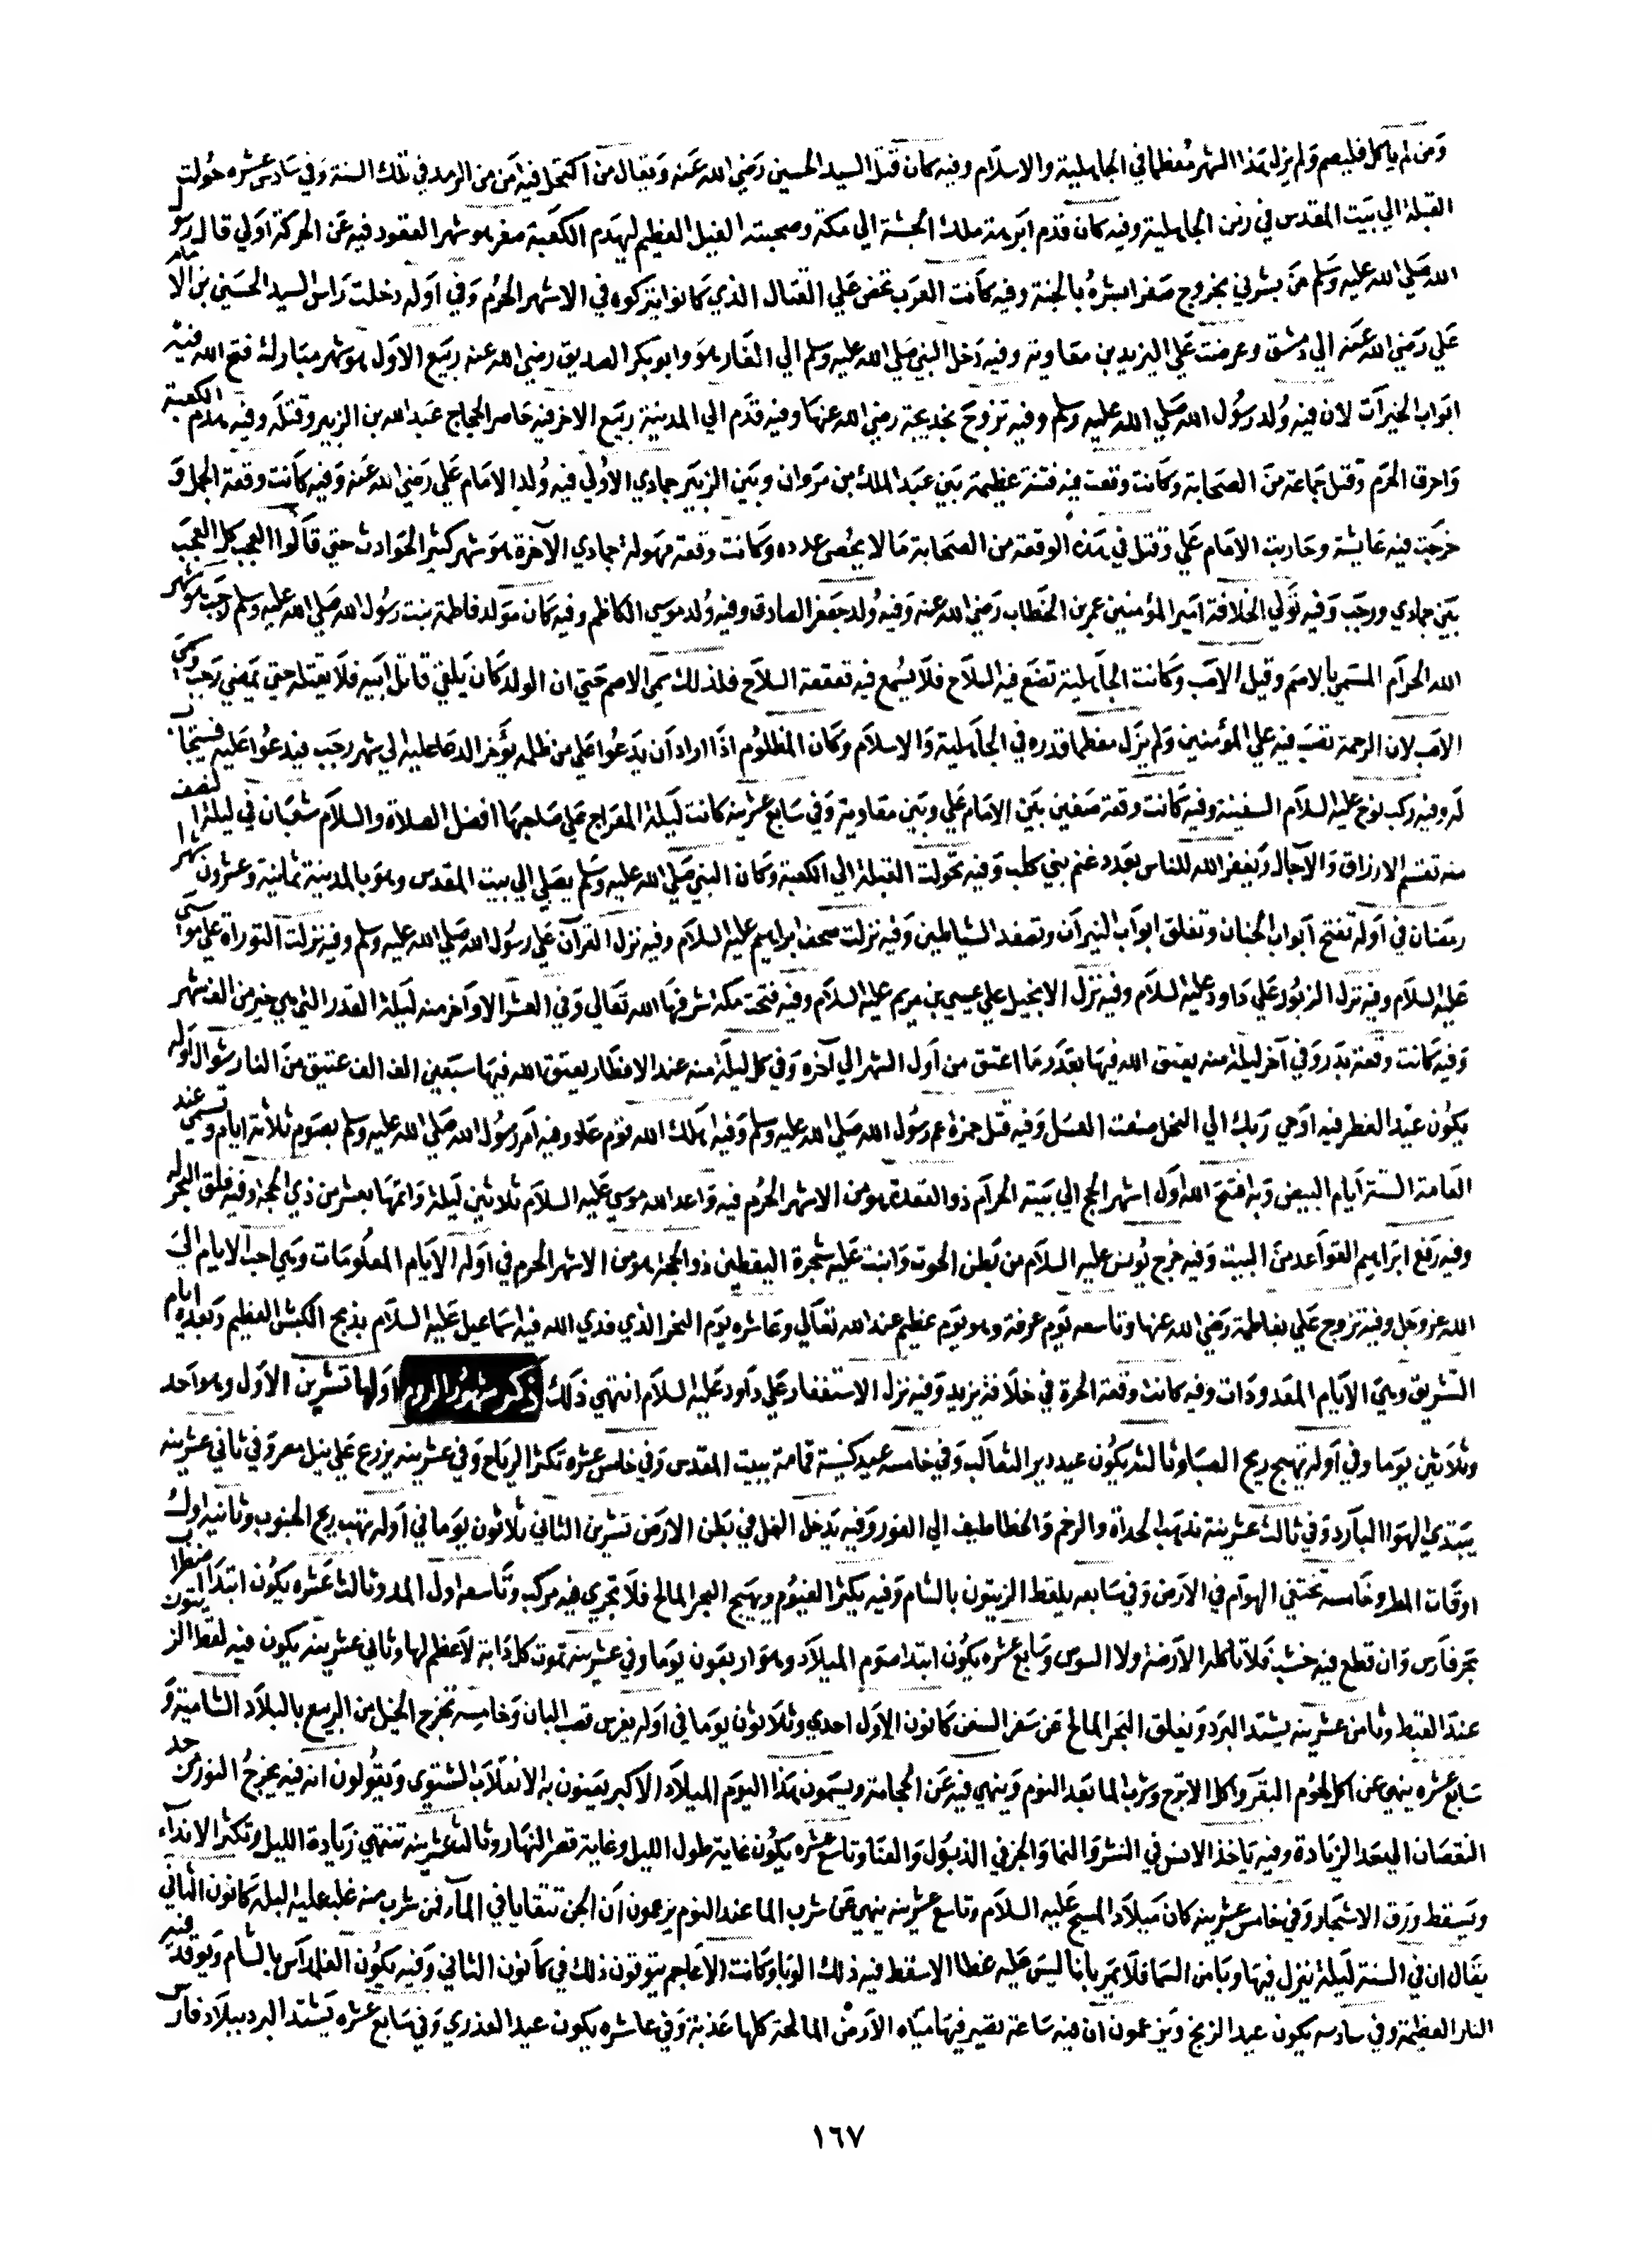 ومن لم ياكل فليصم ولم يزل هذا الشهر معظما في الجاهلية والاسلام وفيه كان قتل السيد الحسين رضي الله عنه ويقال من اكتحل فيه امن من الرمد في تلك السنة وفي سادس عشره حولت
القبلة الي بيت المقدس في زمن الجاهلية وفيه كان قدم ابرهة ملك الحبشة الي مكة وصحبته الفيل العظيم ليهدم الكعبة صفر هو شهر القعود فيه عن الحركة اولي قال رسول
الله صلي الله عليه وسلم من بشرني بخروج صفر ابشره بالجنة وفيه كانت العرب تحض علي القتال الذي كانوا يتركوه في الاشهر الحرم وفي اوله دخلت راس السيد الحسين بن الامام
علي رضي الله عنه الي دمشق وعرضت علي اليزيد بن معاوية وفيه دخل النبي صلي الله عليه وسلم الي الغار هو وابو بكر الصديق رضي الله عنه ربيع الاول هو شهر مبارك فتح الله فيه
ابواب الخيرات لان فيه ولد رسول الله صلي الله عليه وسلم وفيه تزوج بخديجة رضي الله عنها وفيه قدم الي المدينة ربيع الاخر فيه حاصر الحجاج عبد الله بن الزبير وقتله وفيه هدم الكعبة
واحرق الحرم وقتل جماعة من الصحابة وكانت وقعت فيه فتنة عظيمة بين عبد الملك بن مروان وبين الزبير جمادي الاولي فيه ولد الامام علي رضي الله عنه وفيه كانت وقعة الجمل و
خرجت فيه عايشة وحاربت الامام علي وقتل في هذه الوقعة من الصحابة ما لا يحصي عدده وكانت وقعة مهولة جمادي الآخرة هو شهر كثير الحوادث حتي قالوا العجب كل العجب
بين جمادي ورجب وفيه تولي الخلافة امير المؤمنين عمر بن الخطاب رضي الله عنه وفيه ولد جعفر الصادق وفيه ولد موسي الكاظم وفيه كان مولد فاطمة بنت رسول الله صلي الله عليه وسلم رجب هو شهر
الله الحرام المسمي بالاصم وقيل الاصب وكانت الجاهلية تضع فيه السلاح فلا يسمع فيه قعقعة السلاح فلذلك سمي الاصم حتي ان الولد كان يلقي قاتل ابيه فلا يقتله حتي يمضي رجب وسمي
الاصب لان الرحمة تصب فيه علي المؤمنين ولم يزل معظما قدره في الجاهلية والاسلام وكان المظلوم اذا اراد ان يدعوا علي من ظلمه يؤخر الدعا عليه الي شهر رجب فيدعوا عليه فيستجاب
له وفيه ركب نوح عليه السلام السفينة وفيه كانت وقعة صفين بين الامام علي وبين معاوية وفي سابع عشرينه كانت ليلة المعراج علي صاحبها افضل الصلاة والسلام شعبان في ليلة النصف
منه تقسم الارزاق والآجال ويغفر الله للناس بعدد غنم بني كلب وفيه تحولت القبلة الي الكعبة وكان النبي صلي الله عليه وسلم يصلي الي بيت المقدس وهو بالمدينة ثمانية وعشرون شهرا
رمضان في اوله تفتح ابواب الجنان وتغلق ابواب النيران وتصفد الشياطين وفيه نزلت صحف ابراهيم عليه السلام وفيه نزل القرآن علي رسول الله صلي الله عليه وسلم وفيه نزلت التوراة علي موسي
عليه السلام وفيه نزل الزبور علي داود عليه السلام وفيه نزل الانجيل علي عيسي بن مريم عليه السلام وفيه فتحت مكة شرفها الله تعالي وفي العشر الاواخر منه ليلة القدر التي هي خير من الف شهر
وفيه كانت وقعة بدر وفي آخر ليلة منه يعتق الله فيها بقدر ما اعتق من اول الشهر الي آخره وفي كل ليلة منه عند الافطار يعتق الله فيها سبعين الف الف عتيق من النار شوال اوله
يكون عيد الفطر فيه اوحي ربك الي النحل صنعت العسل وفيه قتل حمزة عم رسول الله صلي الله عليه وسلم وفيه اهلك الله قوم عاد وفيه امر رسول الله صلي الله عليه وسلم بصوم ثلاثة ايام وتسمي عند
العامة الستة ايام البيض وبه افتتح الله اول اشهر الحج الي بيته الحرام ذو القعدة هو من الاشهر الحرم فيه واعد الله موسي عليه السلام ثلاثين ليلة واتمها بعشر من ذي الحجة وفيه فلق البحر له
وفيه رفع ابراهيم القواعد من البيت وفيه خرج يونس عليه السلام من بطن الحوت وانبت عليه شجرة اليقطين ذو الحجة هو من الاشهر الحرم في اوله الايام المعلومات وهي احب الايام الي
الله عز وجل وفيه تزوج علي بفاطمة رضي الله عنها وتاسعه يوم عرفة وهو يوم عظيم عند الله تعالي وعاشره يوم النحر الذي فدي الله فيه اسماعيل عليه السلام بذبح الكبش العظيم وبعده ايام
التشريق وهي الايام المعدودات وفيه كانت وقعة الحرة في خلافة يزيد وفيه نزل الاستغفار علي داود عليه السلام انتهي ذلك ذكر شهور الروم اولها تشرين الاول وهو احد
وثلاثين يوما وفي اوله تهيج ريح الصبا وثالثه يكون عيد دير الثعالب وفي خامسه عيد كنيسة قمامة ببيت المقدس وفي خامس عشره تكثر الرياح وفي عشرينه يزرع علي نيل مصر وفي ثاني عشرينه
يبتدي الهوا البارد وفي ثالث عشرينه تذهب الحداة والرخم والخطاطيف الي الغور وفيه يدخل النمل في بطن الارض تشرين الثاني ثلاثون يوما في اوله تهب ريح الجنوب وثانيه اول
اوقات المطر وخامسه تختفي الهوام في الارض وفي سابعه يلقط الزيتون بالشام وفيه يكثر الغيوم ويهيج البحر المالح فلا تجري فيه مركب وتاسعه اول المد وثالث عشره يكون ابتدا اضطراب
بحر فارس وان قطع فيه خشب فلا تاكله الارضة ولا السوس وسابع عشره يكون ابتدا صوم الميلاد وهو اربعون يوما وفي عشرينه تموت كل دابة لا عظم لها وثاني عشرينه يكون فيه لقط الزيتون
عند القبط وثامن عشرينه يشتد البرد ويغلق البحر المالح عن سفر السفن كانون الاول احدي وثلاثون يوما في اوله يغرس قصب البان وخامسه تخرج الخيل من الربيع بالبلاد الشامية و
سابع عشره ينهي عن اكل لحوم البقر واكل الاترج وشرب الما بعد النوم وينهي فيه عن الحجامة ويسمون هذا اليوم الميلاد الاكبر يعنون به الانقلاب الشتوي ويقولون انه فيه يخرج النور من حد
النقصان الي حد الزيادة وفيه ياخذ الانس في النشو والنما والجن في الذبول والفنا وتاسع عشره يكون غاية طول الليل وغاية قصر النهار وثالث عشرينه تنتهي زيادة الليل وتكثر الانداء
ويسقط ورق الاشجار وفي خامس عشرينه كان ميلاد المسيح عليه السلام وتاسع عشرينه ينهي عن شرب الما عند النوم يزعمون ان الجن تتقايا في الماء فمن شرب منه غلب عليه البله كانون الثاني
يقال ان في السنة ليلة ينزل فيها وبا من السما فلا يمر بانا ليس عليه غطا الا سقط فيه ذلك الوبا وكانت الاعاجم يتوقون ذلك في كانون الثاني وفيه يكون القلداس بالشام ويوقد فيه
النار العظيمة وفي سادسه يكون عيد الزيح ويزعمون ان فيه ساعة تصير فيها مياه الارض المالحة كلها عذبة وفي عاشره يكون عيد العذري وفي سابع عشره يشتد البرد ببلاد فارس
١٦٧